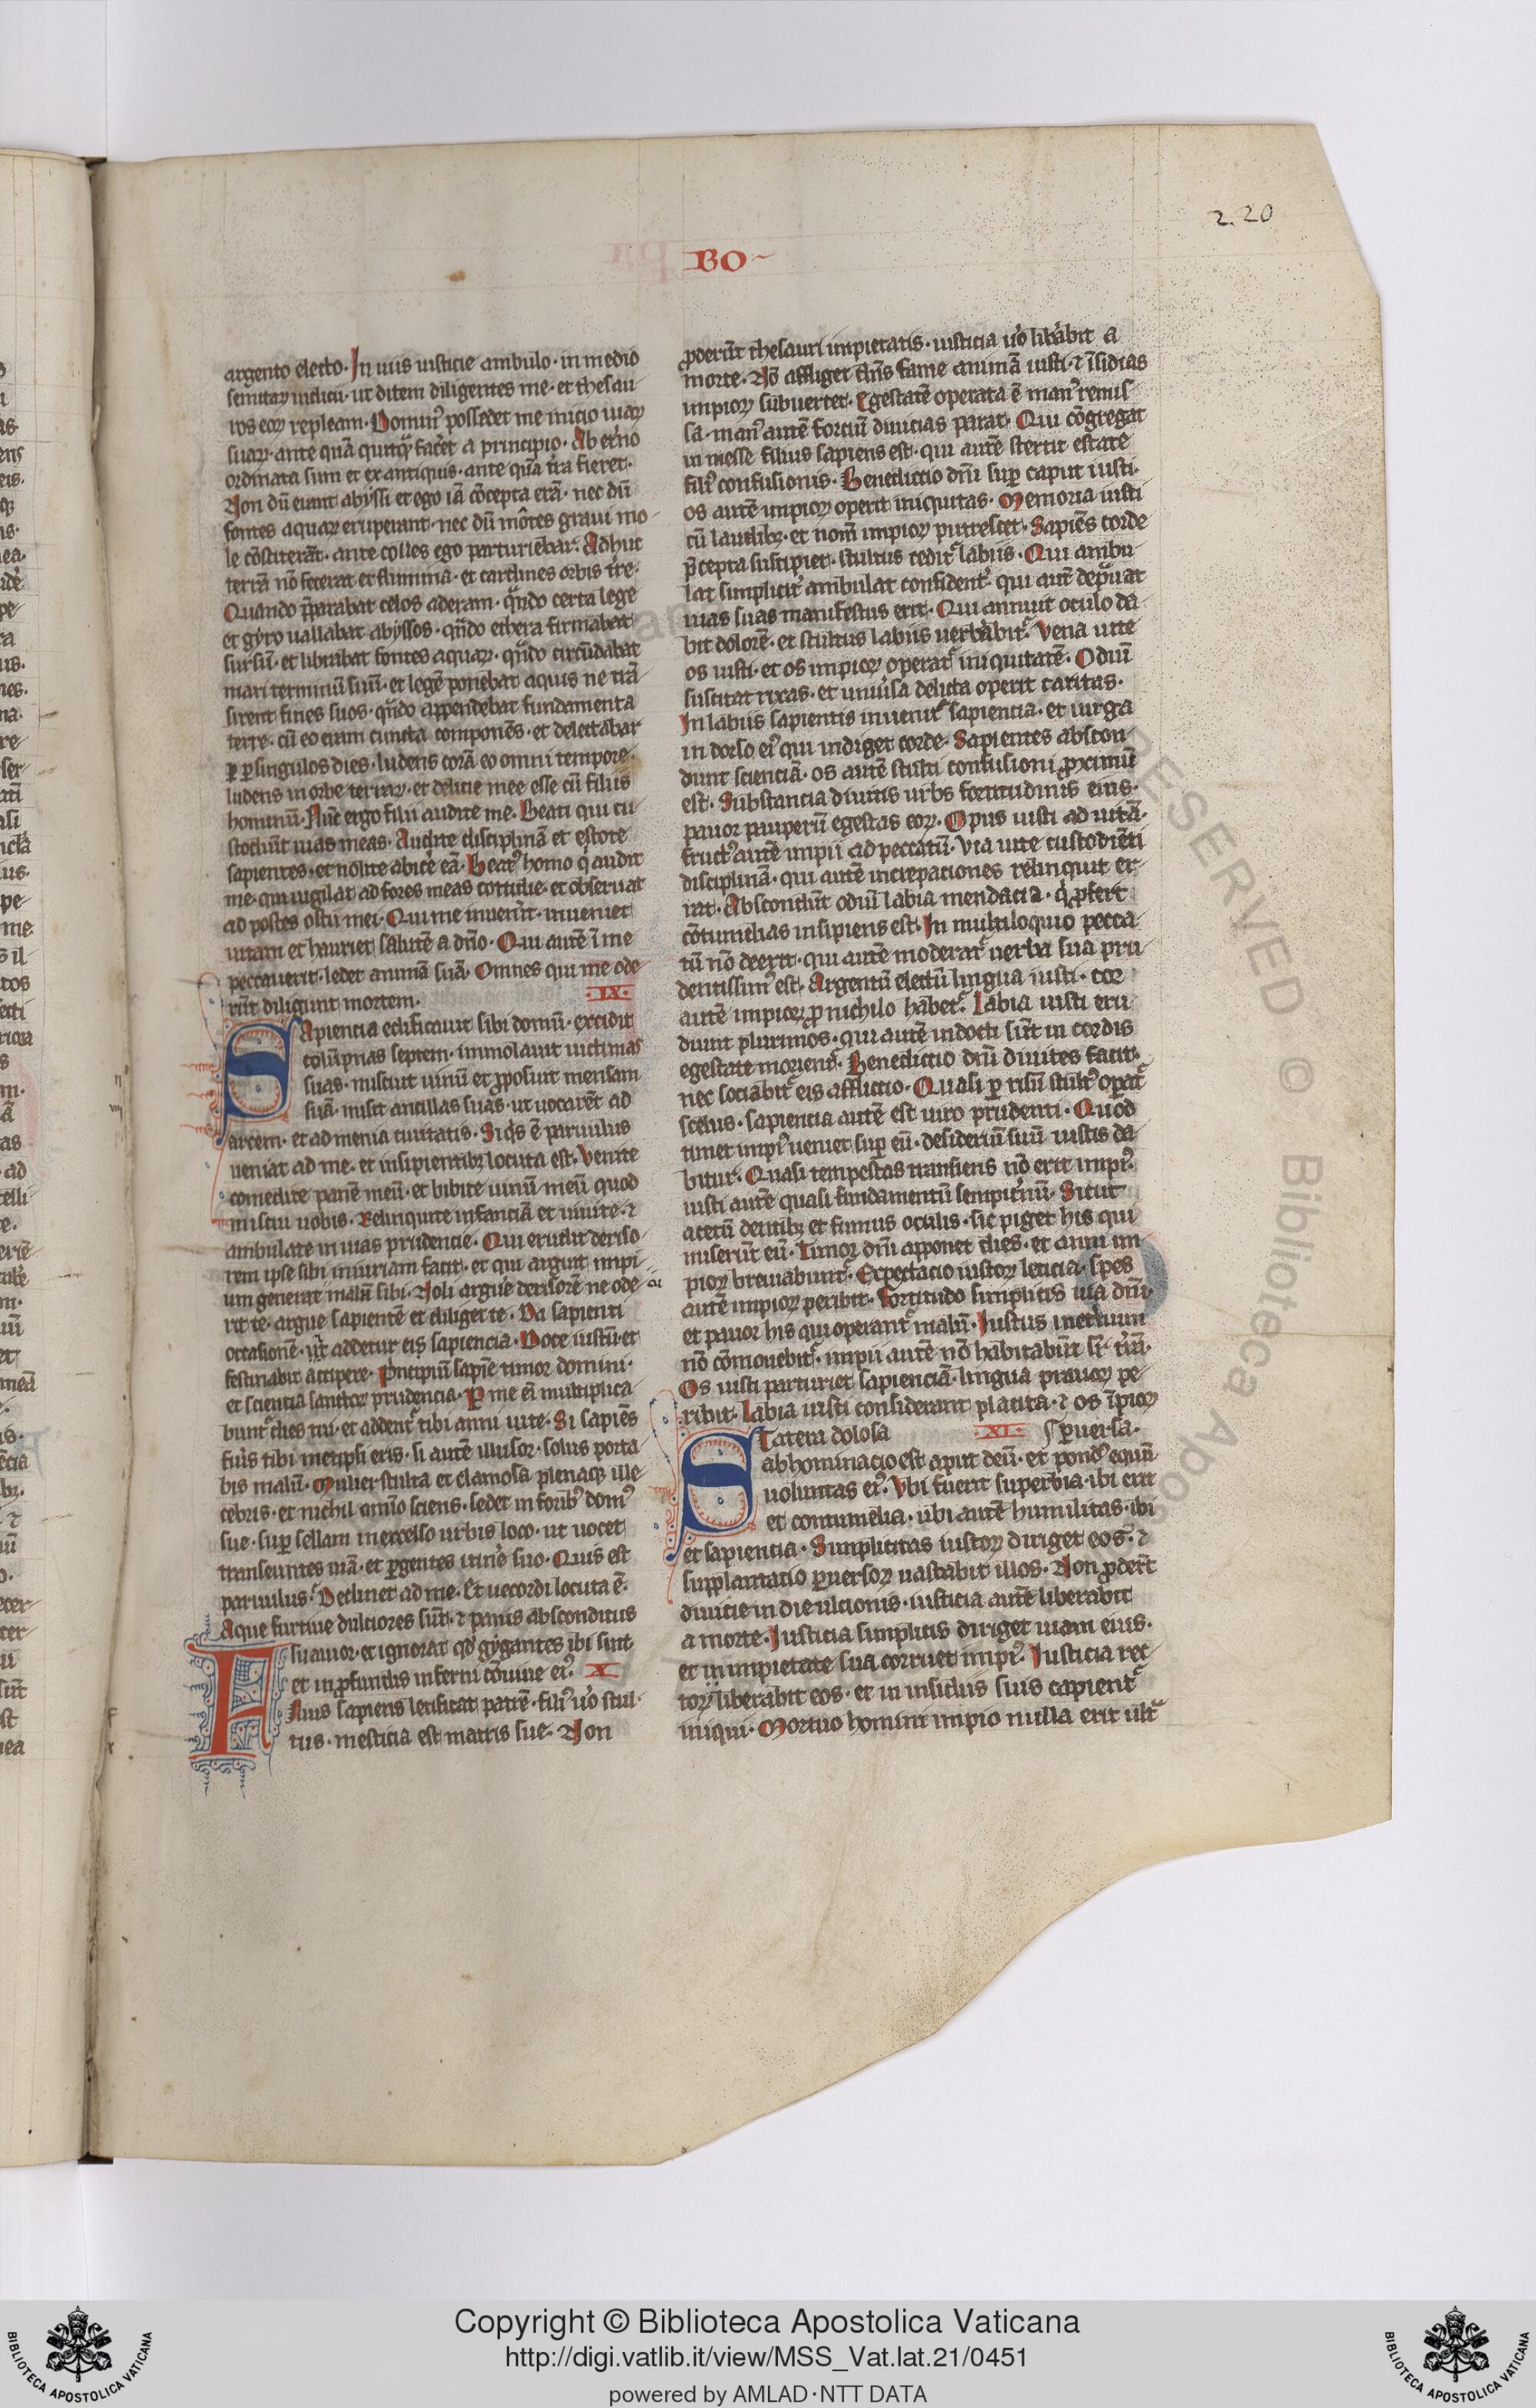 2.20
BO
argento electo. In uiis iusticie ambulo. in medio
semitaꝝ iudicii. ut ditem diligentes me. et thesau
ros eoꝝ repleam. Domin᷒ possedet me inicio uiaꝝ
suaꝝ. ante quā quicq̄ facēt a principio. Ab et̓no
ordinata sum et ex antiquis. ante quā t̓ra fieret.
Non dū erant abyssi et ego iā cōcepta erā. nec dū
fontes aquaꝝ eruperant. nec dū mōtes graui mo
le cōstiterāt. ante colles ego parturiebar. Adhuc
terrā nō fecerat et flumina. et cardines orbis t̓re.
Quando p̄parabat celos aderam. qn̄do certa lege
et gyro uallabat abyssos. qn̄do ethera firmabat
sursū. et librabat fontes aquaꝝ. qn̄do circūdabat
mari terminū suū. et legē ponebat aquis ne trā
sirent fines suos. qn̄do appendebat fundamenta
terre. cū eo eram cuncta componēs. et delectabar
ꝑ singulos dies. ludens corā eo omni tempore.
ludens in orbe terraꝝ. et delicie mee esse cū filiis
hominū. Nūc ergo filii audite me. Beati qui cu
stodiūt uias meas. Audite disciplinā et estote
sapientes. et nolite abicē eā. Beat᷒ homo q̇ audit
me. qui uigilat ad fores meas cottidie. et obseruat
ad postes ostii mei. Qui me inuen̓it. inueniet
uitam et hauriet salutē a dn̄o. Qui autē ī me
peccauerit. ledet animā suā. Omnes qui me ode
rūt diligunt mortem. .IX.
Sapiencia edificauit sibi domū. excidit
colūpnas septem. immolauit uictimas
suas. miscuit uinū et ꝓposuit mensam
suā. misit ancillas suas. ut uocarēt ad
arcem. et ad menia ciuitatis. Siq̇s ē paruulus
ueniat ad me. et insipientibꝫ locuta est. Venite
comedite panē meū. et bibite uinū meū quod
miscui uobis. Relinquite infanciā et uiuite. ⁊
ambulate in uias prudencie. Qui erudit deriso
rem ipse sibi iniuriam facit. et qui arguit impi
um generat maculā sibi. Noli arguē derisorē ne ode
rit te. argue sapientē et diliget te. Da sapienti
occasionē. ut addetur eis sapiencia. Doce iustū. et
festinabit accipere. Principiū sapīe timor domini.
et scientia sanctoꝝ prudencia. Ꝑ me eī multiplica
bunt᷑ dies tui. et addent᷑ tibi anni uite. Si sapiēs
fu̓is tibi metipsi eris. si autē illusor. solus porta
bis malū. Mulier stulta et clamosa plenaq; ille
cebris. et nichil omīo sciens. sedet in forib᷒ dom᷒
sue. sup̲ sellam in excelso urbis loco. ut uocet
transeuntes uiā. et ꝑgentes itin̓e suo. Quis est
paruulus. Declinet ad me. Et uecordi locuta ē.
Aque furtiue dulciores sūt. ⁊ panis absconditus
suauior. et ignorat qd̓ gygantes ibi sint
et in ꝓfundis inferni cōuiue ei᷒. X
Filius sapiens letificat patrē. fili᷒ u̓o stul
tus. mesticia est matris sue. Non
ꝓderūt thesauri impietatis. iusticia u̓o lib̓abit a
morte. Nō affliget dn̄s fame animā iusti. ⁊ īsidias
impioꝝ subuertet. Egestatē operata ē man᷒ remis
sa. man᷒ autē fortiū diuicias parat. Qui cōgregat
in messe filius sapiens est. qui autē stertit estate
fili᷒ confusionis. Benedictio dn̄i sup̲ caput iusti.
os autē impioꝝ operit iniquitas. Memoria iusti
cū laudibꝫ. et nom̄ impioꝝ putrescet. Sapiēs corde
p̄cepta suscipiet. stultus cedit᷑ labiis. Qui ambu
lat simplicit᷑ ambulat confident᷑. qui aut̄ dep̄uat
uias suas manifestus erit. Qui annuit oculo da
bit dolorē. et stultus labiis uerb̓abit᷑. Vena uite
os iusti. et os impioꝝ operat᷑ iniquitatē. Odiū
suscitat rixas. et uniu̓sa delicta operit caritas.
In labiis sapientis inuenit᷑ sapiencia. et uirga
in dorso ei᷒ qui indiget corde. Sapientes abscon
dunt scienciā. os autē stulti confusioni ꝓximū
est. Substancia diuitis urbs fortitudinis eius.
pauor pauperū egestas eoꝝ. Opus iusti ad uitā.
fruct᷒ autē impii ad peccatū. Via uite custodiēti
disciplinā. qui autē increpationes relinquit er
rat. Abscondūt odiū labia mendacia. q̇ ꝓfert
cōtumelias insipiens est. In multiloquio pecca
tū nō deerit. qui autē moderat᷑ uerba sua pru
dentissim᷒ est. Argentū electū lingua iusti. cor
autē impioꝝ ꝓ nichilo habet᷑. Labia iusti eru
diunt plurimos. qui autē indocti sūt in cordis
egestate morient᷑. Benedictio dn̄i diuites facit.
nec sociabit᷑ eis afflictio. Quasi ꝑ risū stult᷒ opat᷑
scelus. sapiencia autē est uiro prudenti. Quod
timet impi᷒ ueniet sup̲ eū. desideriū suū iustis da
bitur. Quasi tempestas transiens nō erit impi᷒.
iusti autē quasi fundamentū sempit̓nū. Sicut
acetū dentibꝫ et fumus oculis. sic piget his qui
miserūt eū. Timor dn̄i apponet dies. et anni im
pioꝝ breuiabunt᷑. Expectacio iustoꝝ leticia. spes
autē impioꝝ peribit. Fortitudo simplicis uia dn̄i.
et pauor his qui operant᷑ malū. Iustus in et̓num
nō cōmouebit᷑. impii autē nō habitabūt sr̄ t̓rā.
Os iusti parturiet sapienciā. lingua prauoꝝ pe
ribit. Labia iusti considerant placita. ⁊ os īpioꝝ
Statera dolosa .XI. ꝑuersa.
abhominacio est aput deū. et pond᷒ equū
uoluntas ei᷒. Vbi fuerit superbia. ibi erit
et contumelia. ubi autē humilitas. ibi
et sapiencia. Simplicitas iustoꝝ diriget eos. ⁊
supplantatio ꝑuersoꝝ uastabit illos. Non ꝓderūt
diuicie in die ulcionis. iusticia autē liberabit
a morte. Iusticia simplicis diriget uiam eius.
et in impietate sua corruet impi᷒. Iusticia rec
toꝝ liberabit eos. et in insidiis suis capient᷑
iniqui. Mortuo homini impio nulla erit ult᷑
RESERVED © Biblioteca Apos
Copyright © Biblioteca Apostolica Vaticana
http://digi.vatlib.it/view/MSS_Vat.lat.21/0451
powered by AMLAD · NTT DATA
BIBLIOTECA APOSTOLICA VATICANA
BIBLIOTECA APOSTOLICA VATICANA